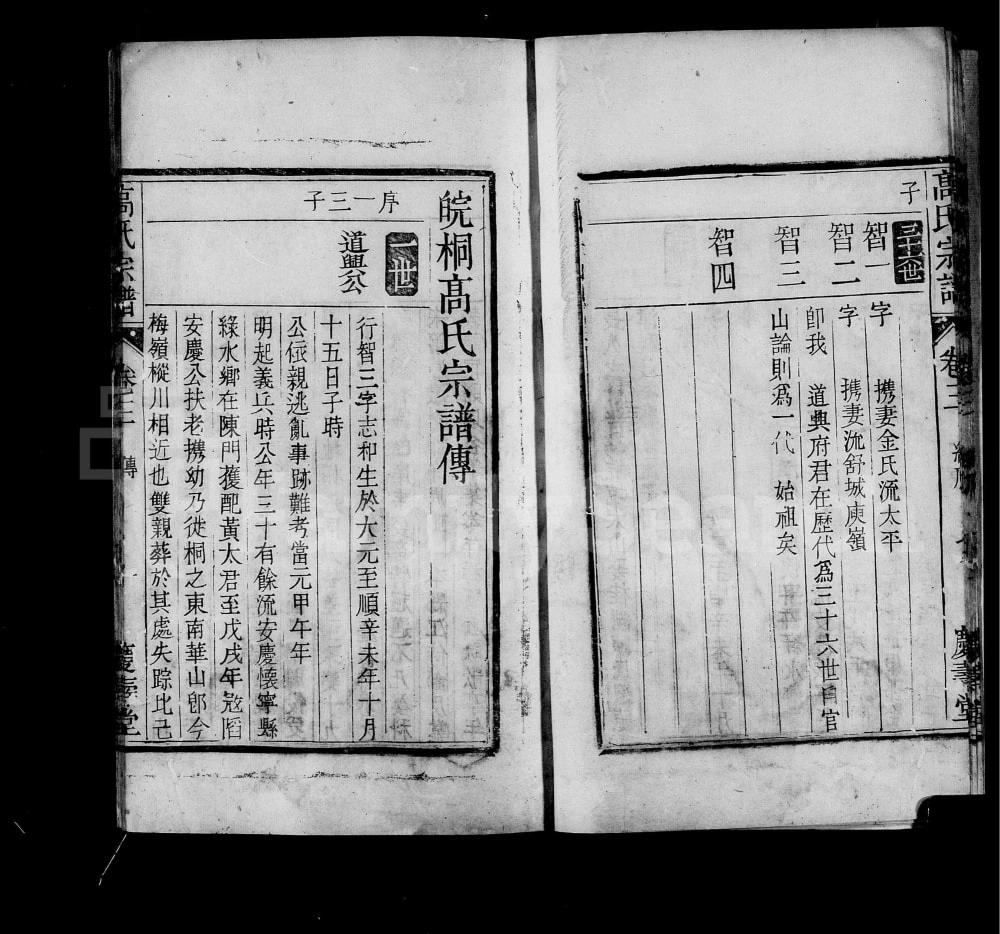 高氏宗譜 卷三 慶壽堂
子
三十六世
智一 字 携妻金氏流太平
智二 字 携妻流舒城庾嶺
智三 卽我 道興府君在歷代爲三十六世自官
山論則爲一代 始祖矣
智四
皖桐髙氏宗譜傳
序一三子
一世
道興公
行智三字志和生於大元至順辛未年十月
十五日子時
公依親逃亂事跡難考當元甲午年
明起義兵時公年三十有餘流安慶懷寧縣
綠水鄉在陳門獲配黃太君至戊戌年寇陷
安慶公扶老携幼乃徙桐之東南華山卽今
梅嶺樅川相近也雙親葬於其處失踪比己
高氏宗譜 卷三 傳 慶壽堂